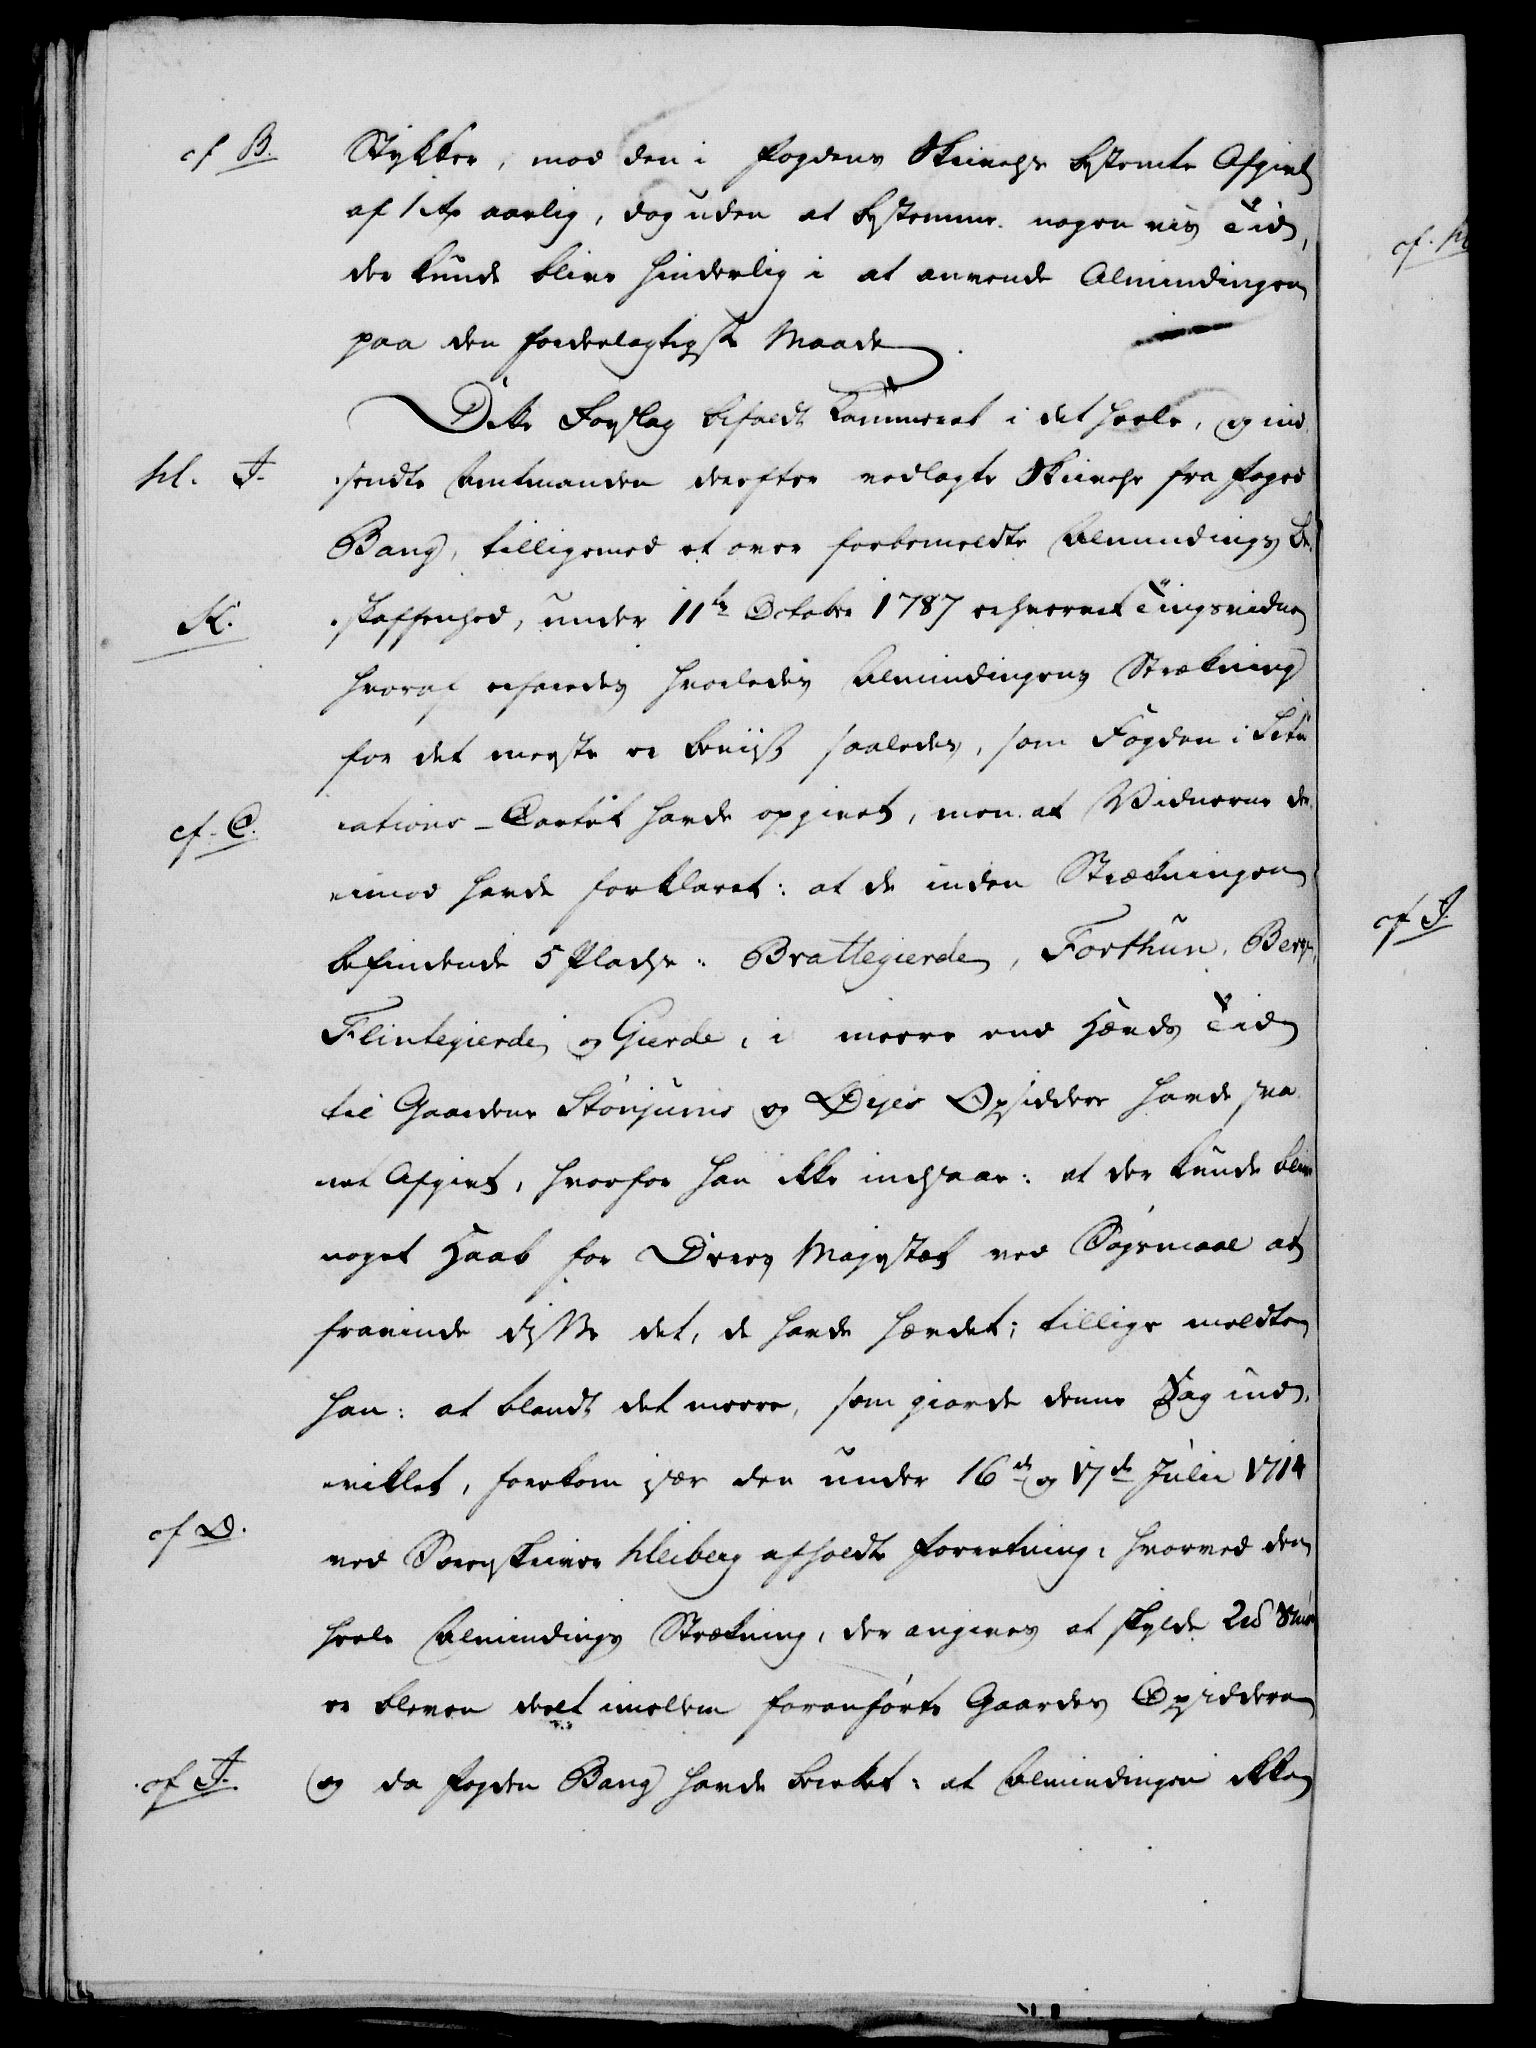 cf B.
Stykker, mod den i Fogdens Skrivelse bestemte Afgivt
af 1 rdr aarlig, dog uden at bestemme nogen vis Tid,
der kunde blive hinderlig i at anvende Almindingen
paa den fordeelagtigste Maade.
Dette Forslag bifaldt Kammeret i det heele, og ind-
lit. I.
sendte Amtmanden derefter vedlagte Skrivelse fra Foged
Bang, tilligemed et over forbemeldte Almindings Be-
K.
skaffenhed, under 11te October 1787 erhvervet Tingsvidne
hvoraf erfaredes hvorledes Almindingens Strækning
for det meeste er beviist saaledes, som Fogden i Situ
cf. C.
ations-Cartet havde opgivet, men at Vidnerne der-
imod havde forklaret: at de inden Strækningen
befindende 5 Pladse: Brattegierde, Forthun, Berge,
Flintegierde og Gierde, i meere end Hævds Tid
til Gaardene Stønjums og Øyes Opsiddere havde sva-
ret Afgivt, hvorfor han ikke indsaae: at der kunde blive
noget Haab for Deres Majestæt ved Søgsmaal at
fravinde disse det, de havde hævdet; tillige meldte
han: at blandt det meere, som giorde denne Sag ind-
viklet, forekom især den under 16de og 17de Julii 1714
cf D.
ved Sorenskriver Heiberg afholdte Forretning, hvorved den
heele Almindings Strækning, der angives at skylde Smør
er bleven deelt imellem foranførte Gaardes Opsiddere
cf I.
og da Fogden Bang havde beretet: at Almindingen ikke
cf.
cf I.